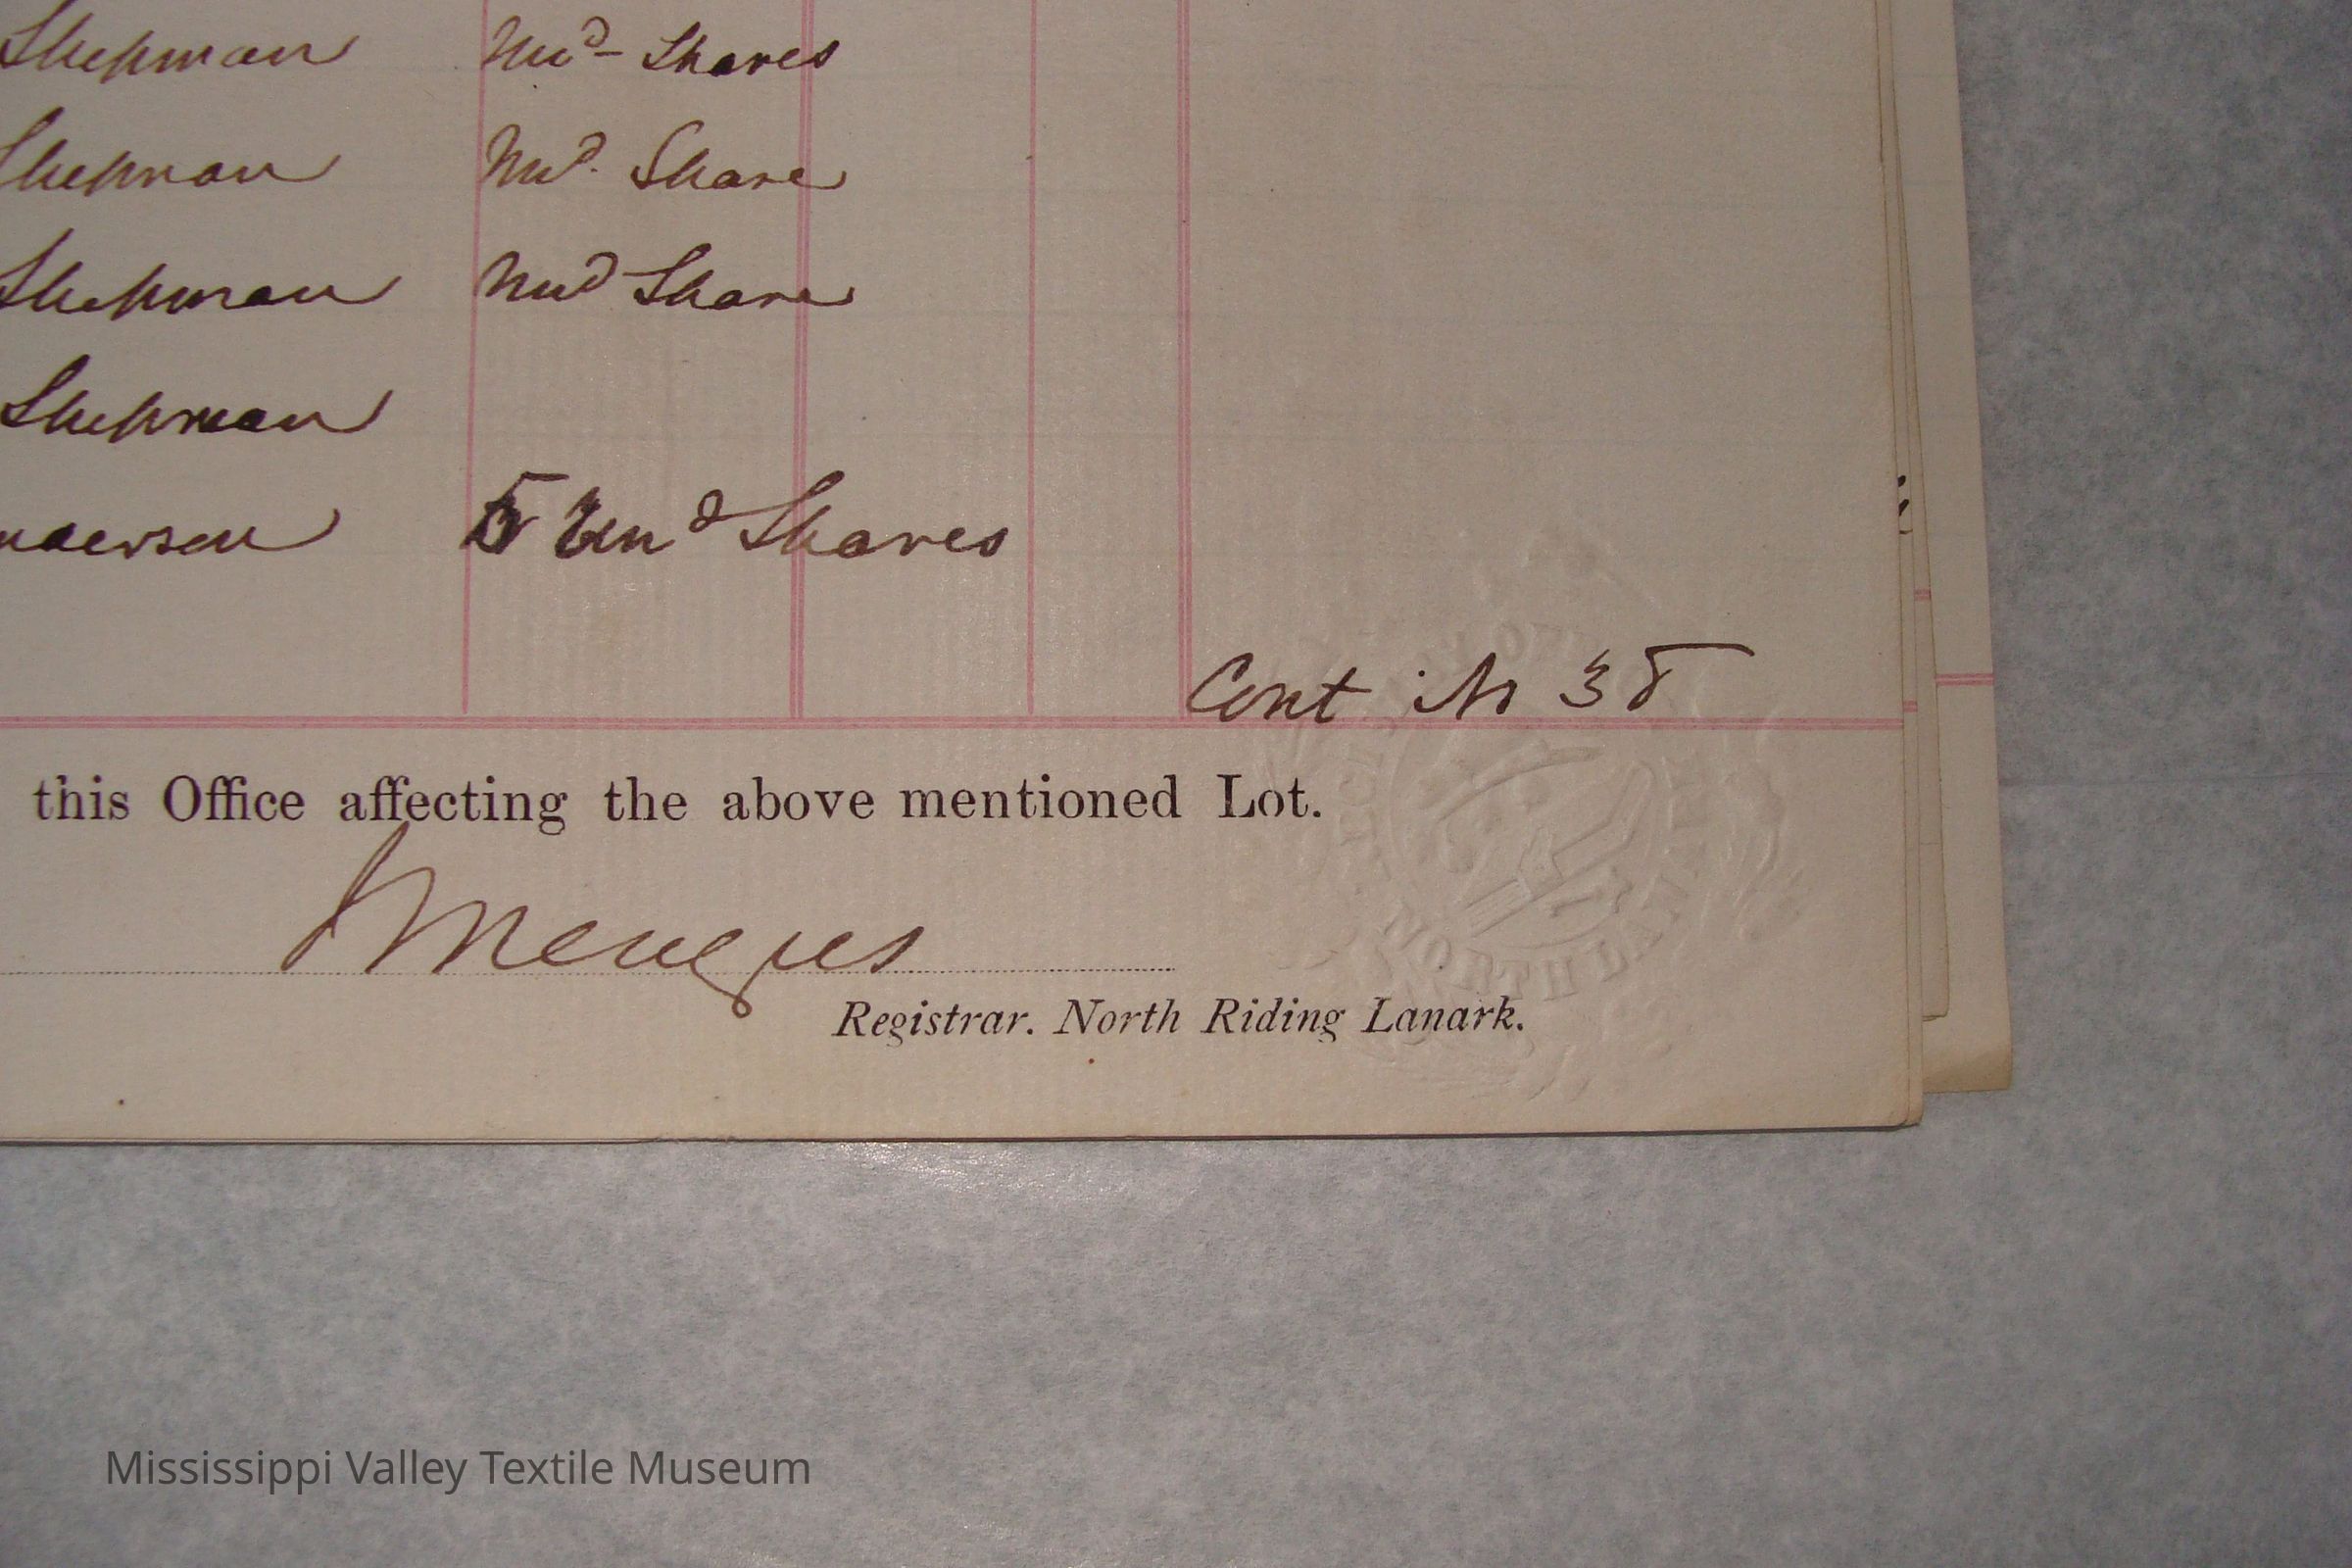 Shepman Und- Shares
Shepman Und. Share
Shepman Und Share
Shepman
5 Und Shares
Cont
this Office affecting the above mentioned Lot.
Registrar. North Riding Lanark.
NORTH LANARK
Mississippi Valley Textile Museum